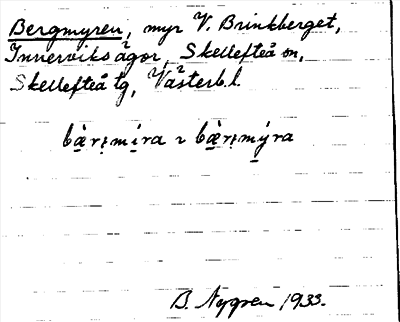 Bergmyren, myr V. Brinkberget,
Innerviks ägor, Skellefteå sn,
Skellefteå tg, Västerb.l.
B. Nygren 1933.